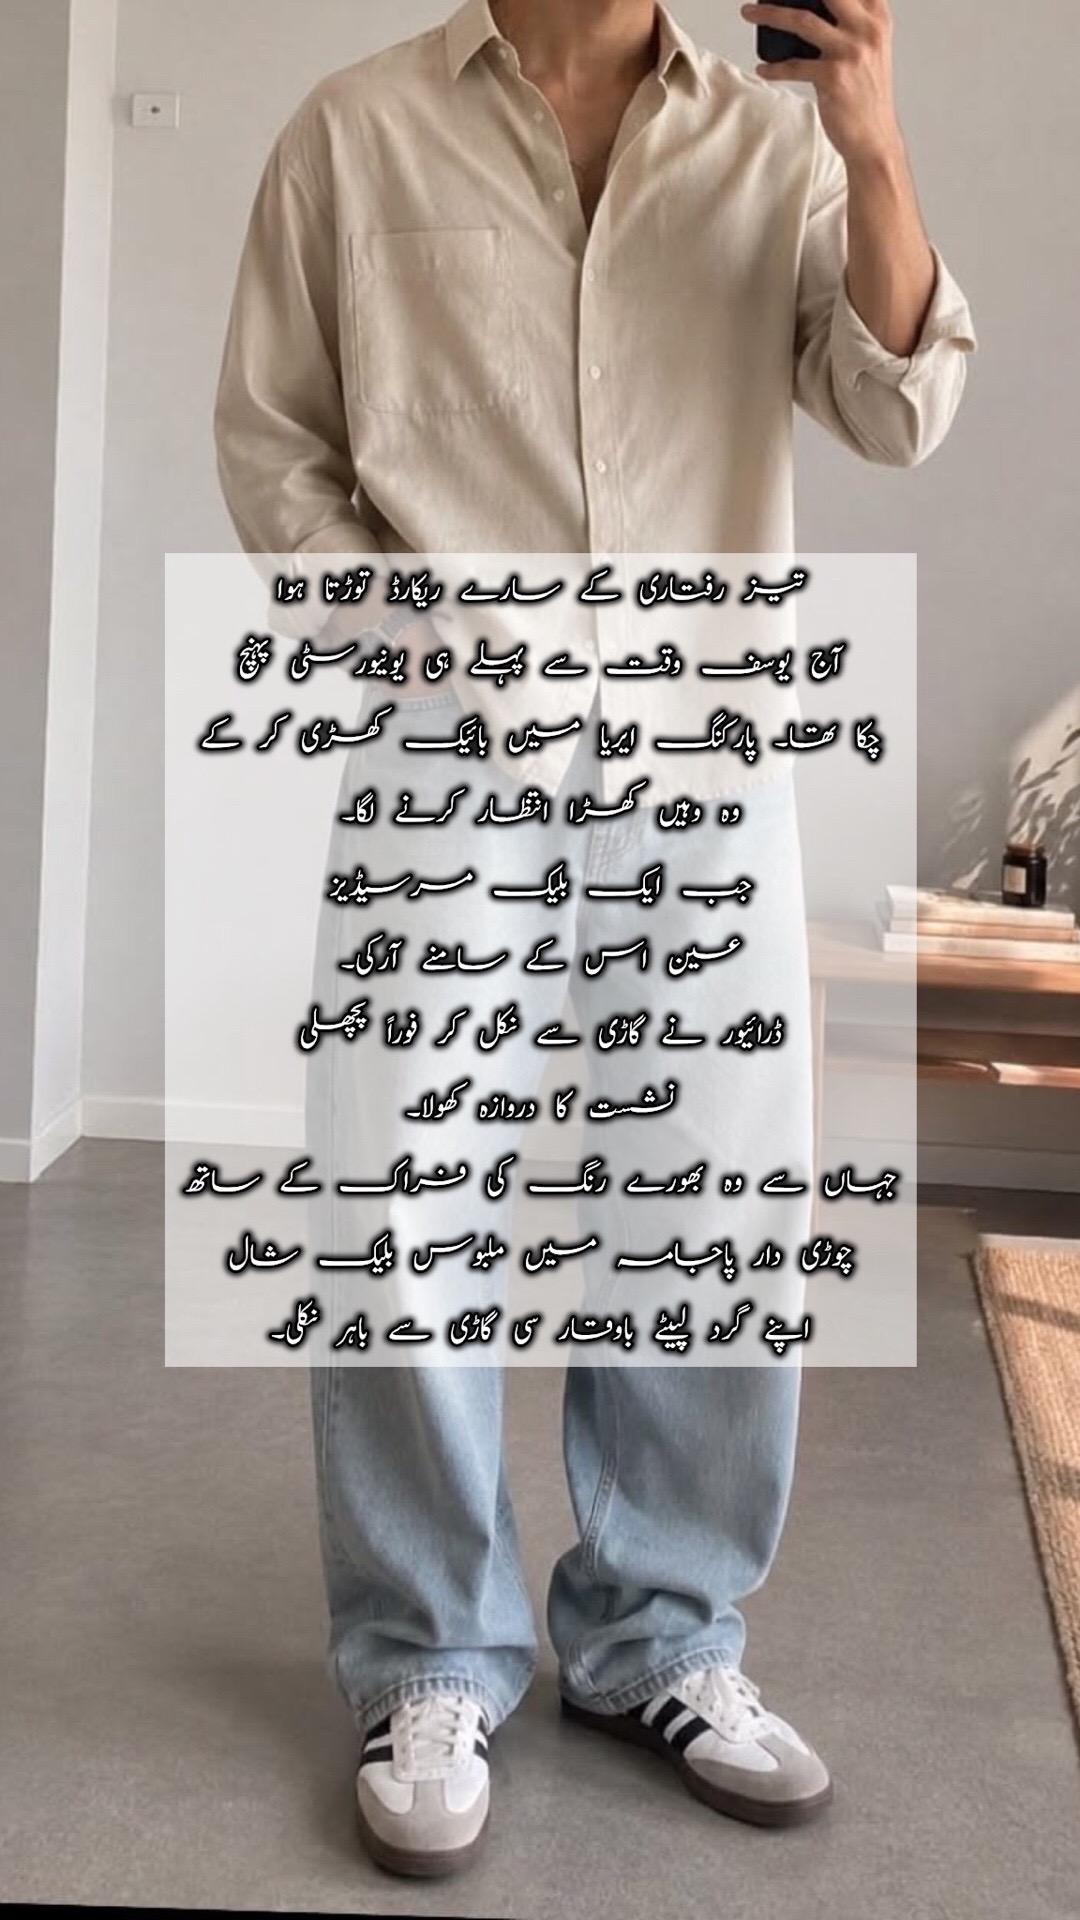 تیز رفتاری کے سارے ریکارڈ توڑتا ہوا
آج یوسف وقت سے پہلے ہی یونیورسٹی پہنچ
چکا تھا۔ پارکنگ ایریا میں بائیک کھڑی کر کے
وہ وہیں کھڑا انتظار کرنے لگا۔
جب ایک بلیک مرسیڈیز
عین اس کے سامنے آرکی۔
ڈرائیور نے گاڑی سے نکل کر فوراً پچھلی
نشست کا دروازہ کھولا۔
جہاں سے وہ بھورے رنگ کی فراک کے ساتھ
چوڑی دار پاجامہ میں ملبوس بلیک شال
اپنے گرد لپیٹے باوقار سی گاڑی سے باہر نکلی۔